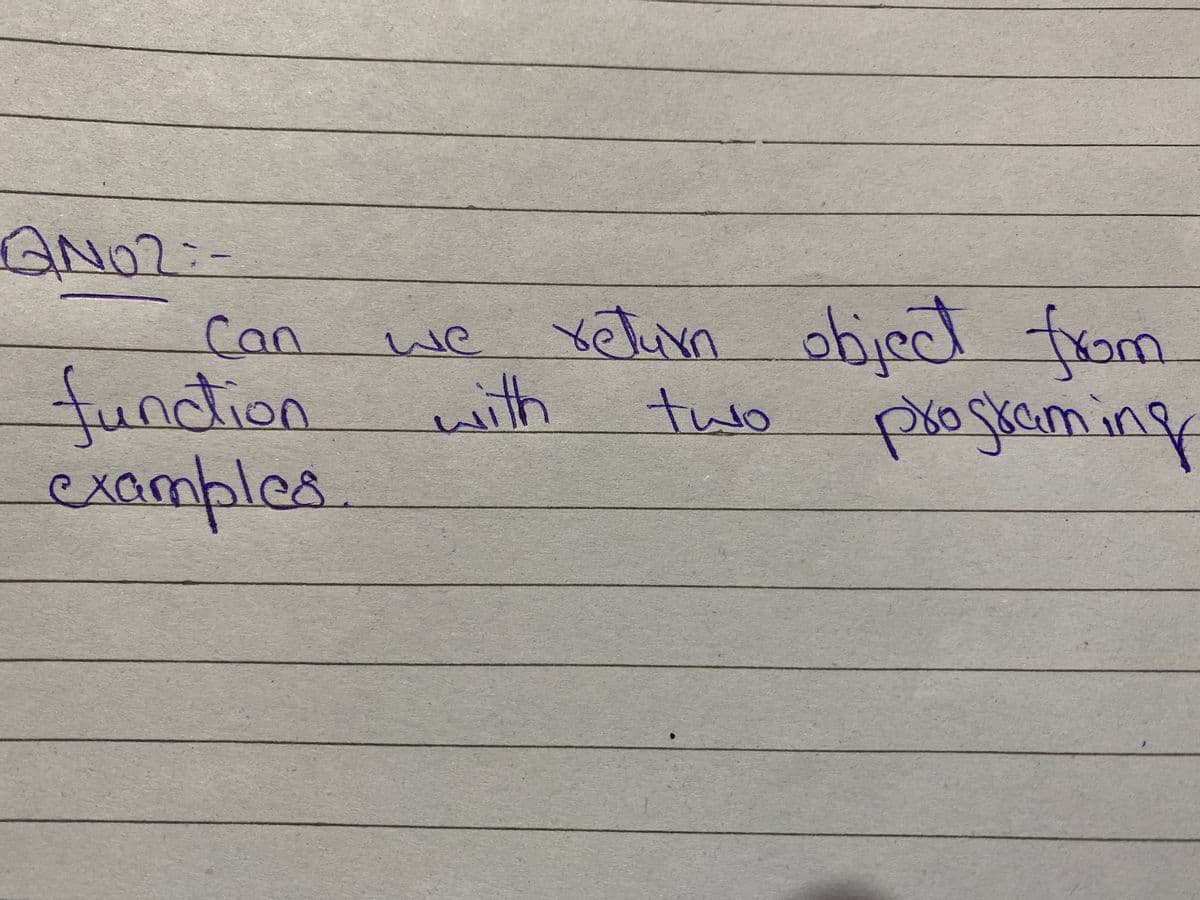 QNO2:-
Can we return object from
function with two programing
examples.